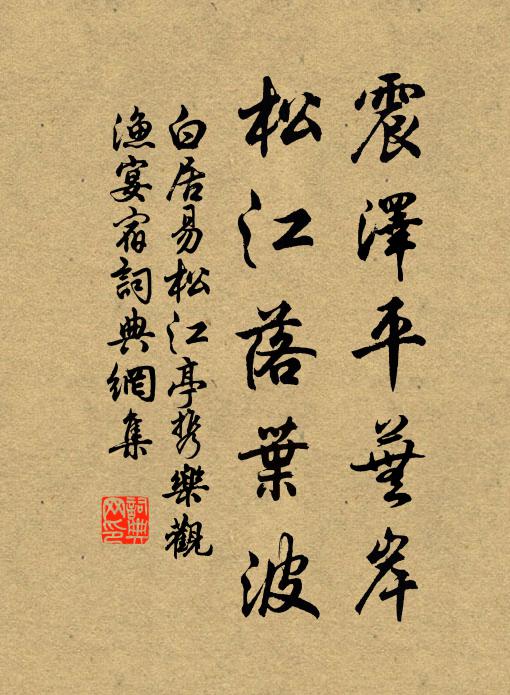 震澤平蕪岸
松江落葉波
白居易松江亭携樂觀
漁宴宿詞典網集
詞典网印